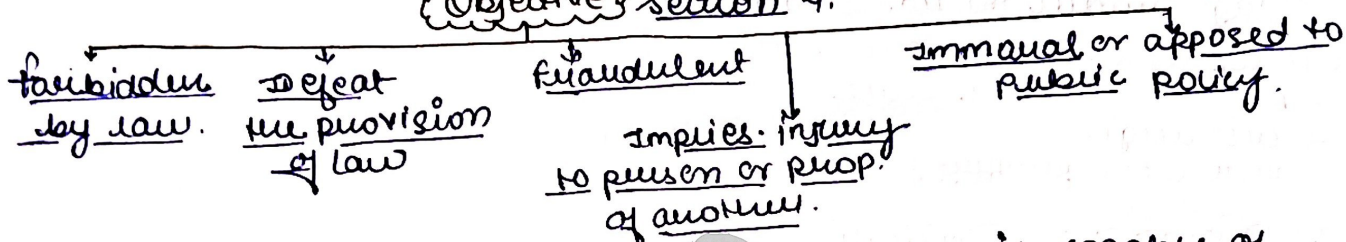 Objective section 4.
Forbidden by law.
Defeat the provision of law
Fraudulent
Implies injury to person or prop. of another.
Immoral or opposed to public policy.